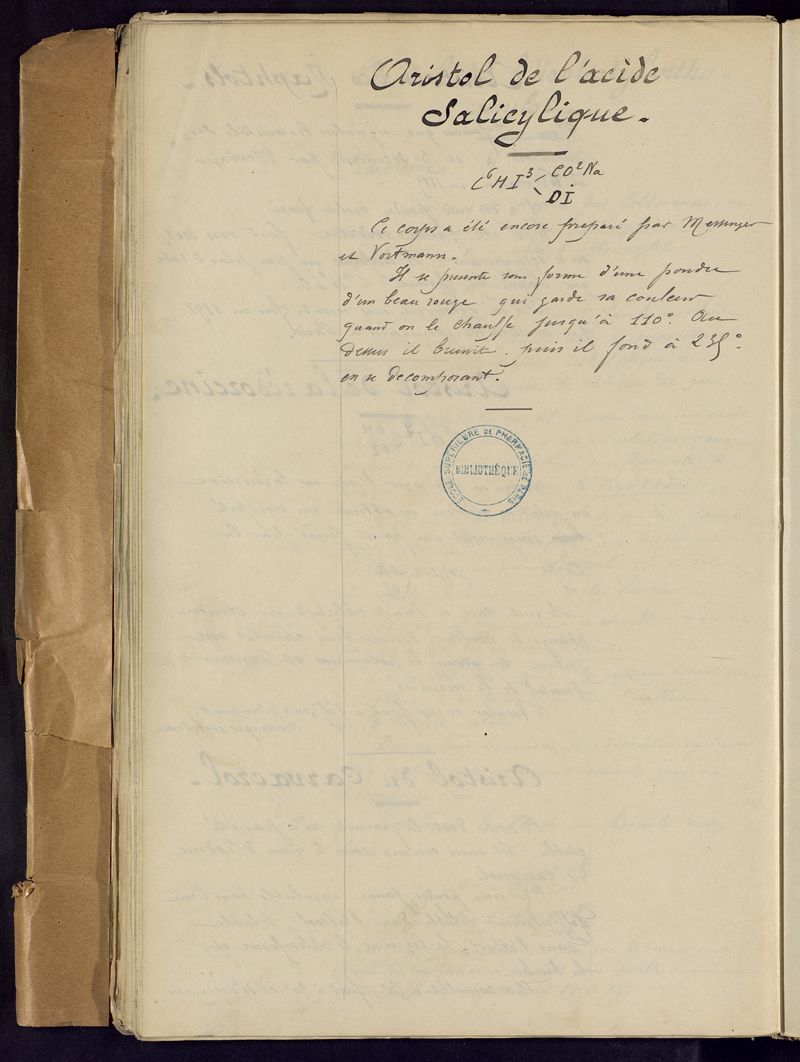 Aristol de l'acide
Salicylique.
C⁶HI³ CO²Na
OI
Ce corps a été encore preparé par Messinger
et Vortmann.
Il se presente sous forme d'une poudre
d'un beau rouge qui garde sa couleur
quand on le chauffe jusqu'à 110°. Au
dessus il brunit. puis il fond à 235°.
en se decomposant.
ECOLE SUPÉRIEURE DE PHARMACIE DE PARIS
BIBLIOTHÈQUE